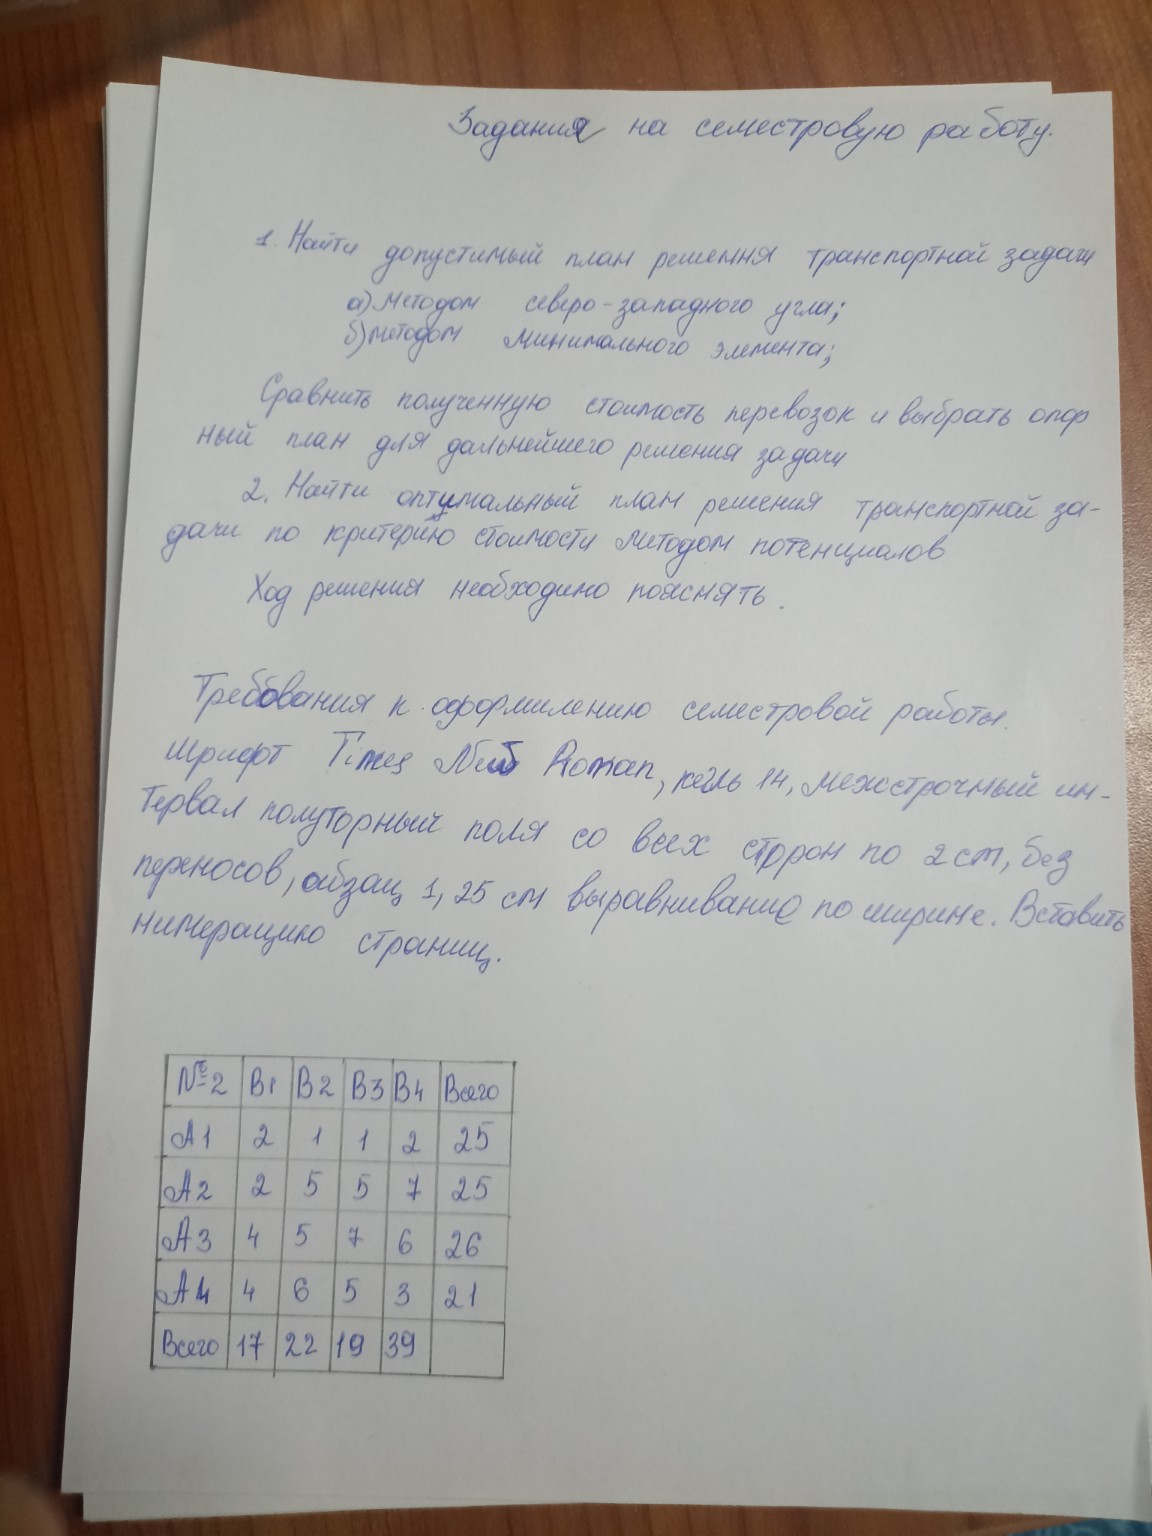 Задания на семестровую работу.
1. Найти допустимый план решения транспортной задачи
а) методом северо-западного угла;
б) методом минимального элемента;
Сравнить полученную стоимость перевозок и выбрать опор
ный план для дальнейшего решения задачи
2. Найти оптимальный план решения транспортной за-
дачи по критерию стоимости методом потенциалов
Ход решения необходимо пояснять.
Требования к оформлению семестровой работы.
Шрифт Times New Roman, кегль 14, межстрочный ин-
тервал полуторный поля со всех сторон по 2 см, без
переносов, абзац 1,25 см выравнивание по ширине. Вставить
нумерацию страниц.
№2 В1 В2 В3 В4 Всего
А1 2 1 1 2 25
А2 2 5 5 7 25
А3 4 5 7 6 26
А4 4 6 5 3 21
Всего 17 22 19 39